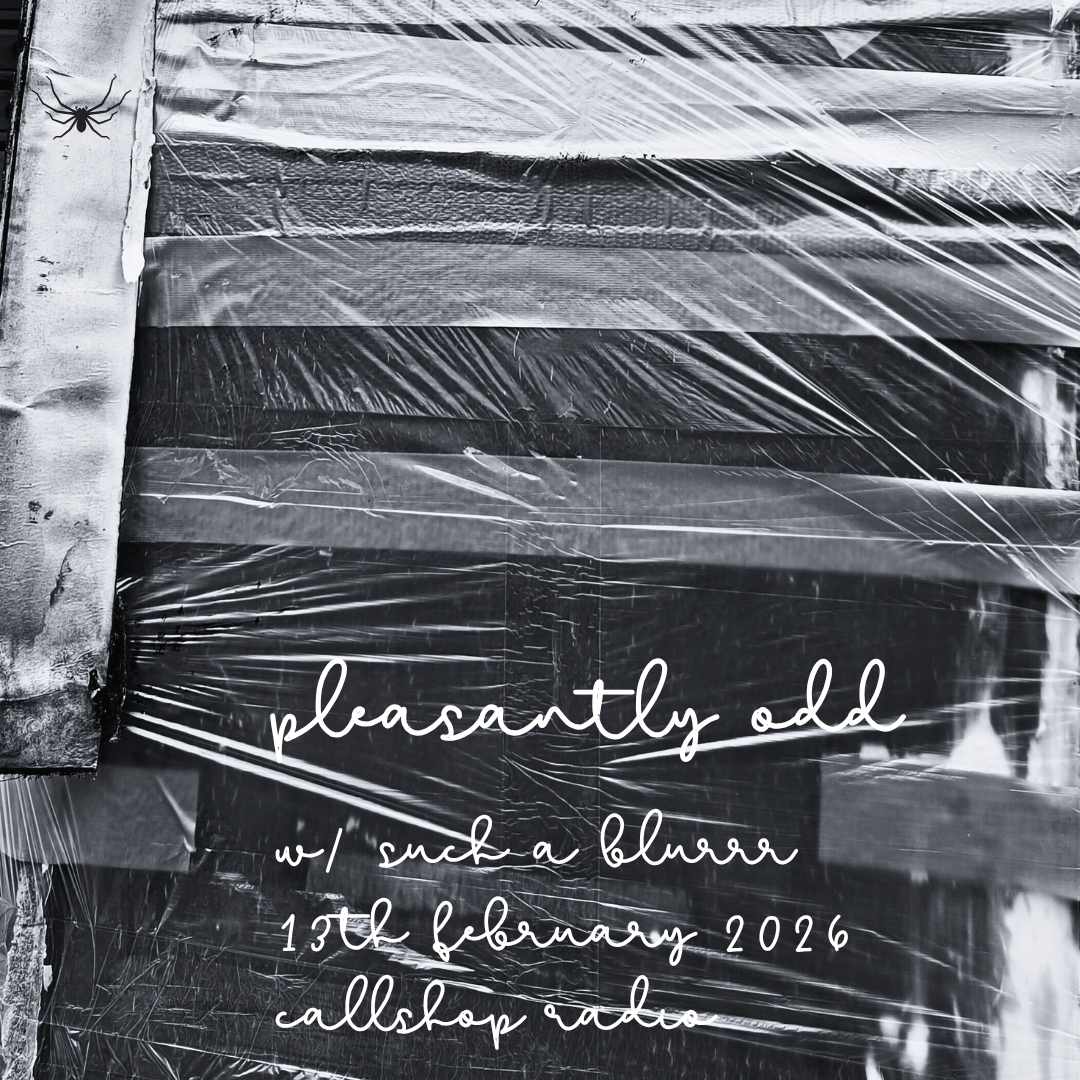 pleasantly odd
w/ such a blurrr
13th february 2026
callshop radio